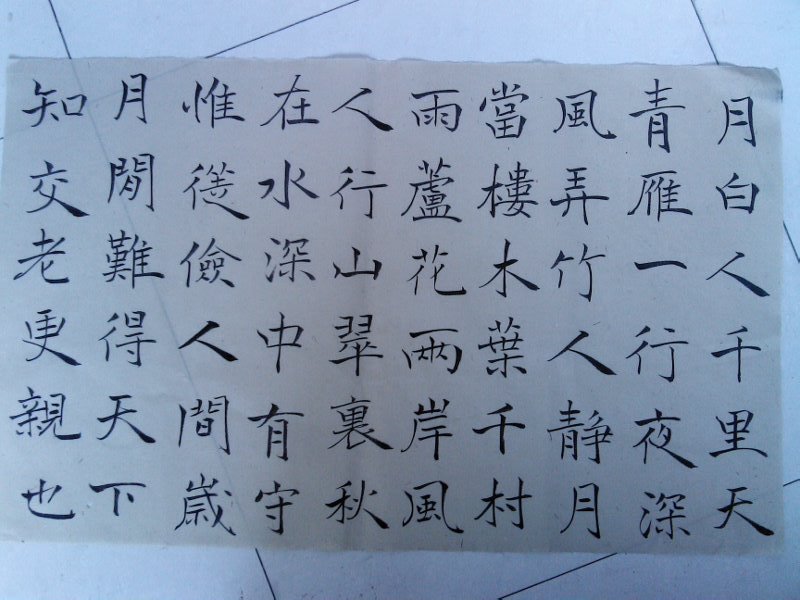 月白人千里天
青雁一行夜深
風弄竹人静月
當樓木葉千村
雨蘆花兩岸風
人行山翠裏秋
在水深中有守
惟從儉人間歲
月閒難得天下
知交老更親也